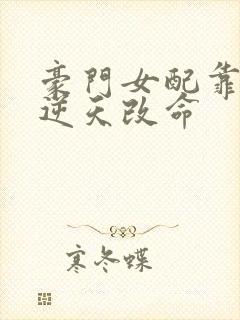 豪門女配靠
逆天改命
寒冬蝶